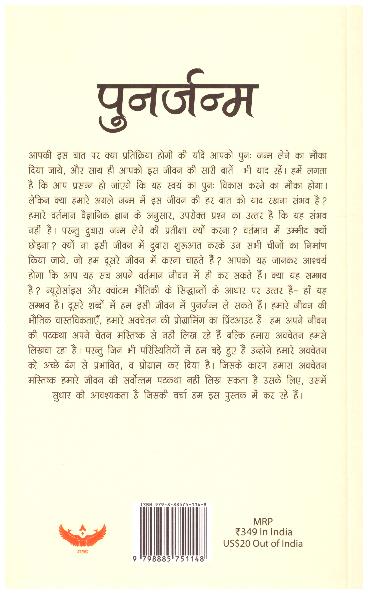 पुनर्जन्म
आपकी इस बात पर क्या प्रतिक्रिया होगी की यदि आपको पुनः जन्म लेने का मौका
दिया जाये, और साथ ही आपको इस जीवन की सारी बातें भी याद रहें। हमें लगता
है कि आप प्रसन्न हो जाएंगे कि यह स्वयं का पुनः विकास करने का मौका होगा।
लेकिन क्या हमारे अगले जन्म में इस जीवन की हर बात को याद रखना संभव है?
हमारे वर्तमान वैज्ञानिक ज्ञान के अनुसार, उपरोक्त प्रश्न का उत्तर है कि यह संभव
नहीं है। परन्तु दुबारा जन्म लेने की प्रतीक्षा क्यों करना? वर्तमान में उम्मीद क्यों
छोड़ना? क्यों ना इसी जीवन में दुबारा शुरूआत करके उन सभी चीजों का निर्माण
किया जाये, जो हम दूसरे जीवन में करना चाहते हैं? आपको यह जानकर आश्चर्य
होगा कि आप यह सब अपने वर्तमान जीवन में ही कर सकते हैं। क्या यह सम्भव
है? न्यूरोसाइंस और क्वांटम भौतिकी के सिद्धान्तों के आधार पर उत्तर है- हाँ यह
सम्भव है। दूसरे शब्दों में हम इसी जीवन में पुनर्जन्म ले सकते हैं। हमारे जीवन की
भौतिक वास्तविकताएँ, हमारे अवचेतन की प्रोग्रामिंग का प्रिंटआउट हैं। हम अपने जीवन
की पटकथा अपने चेतन मस्तिष्क से नहीं लिख रहे हैं बल्कि हमारा अवचेतन हमसे
लिखवा रहा है। परन्तु जिन भी परिस्थितियों में हम बड़े हुए हैं उन्होंने हमारे अवचेतन
को अच्छे ढंग से प्रभावित, व प्रोग्राम कर दिया है। जिसके कारण हमारा अवचेतन
मस्तिष्क हमारे जीवन की सर्वोत्तम पटकथा नहीं लिख सकता है उसके लिए, उसमें
सुधार की आवश्यकता है जिसकी चर्चा हम इस पुस्तक में कर रहे हैं।
MRP
₹349 In India
US$20 Out of India
9 798885 751148